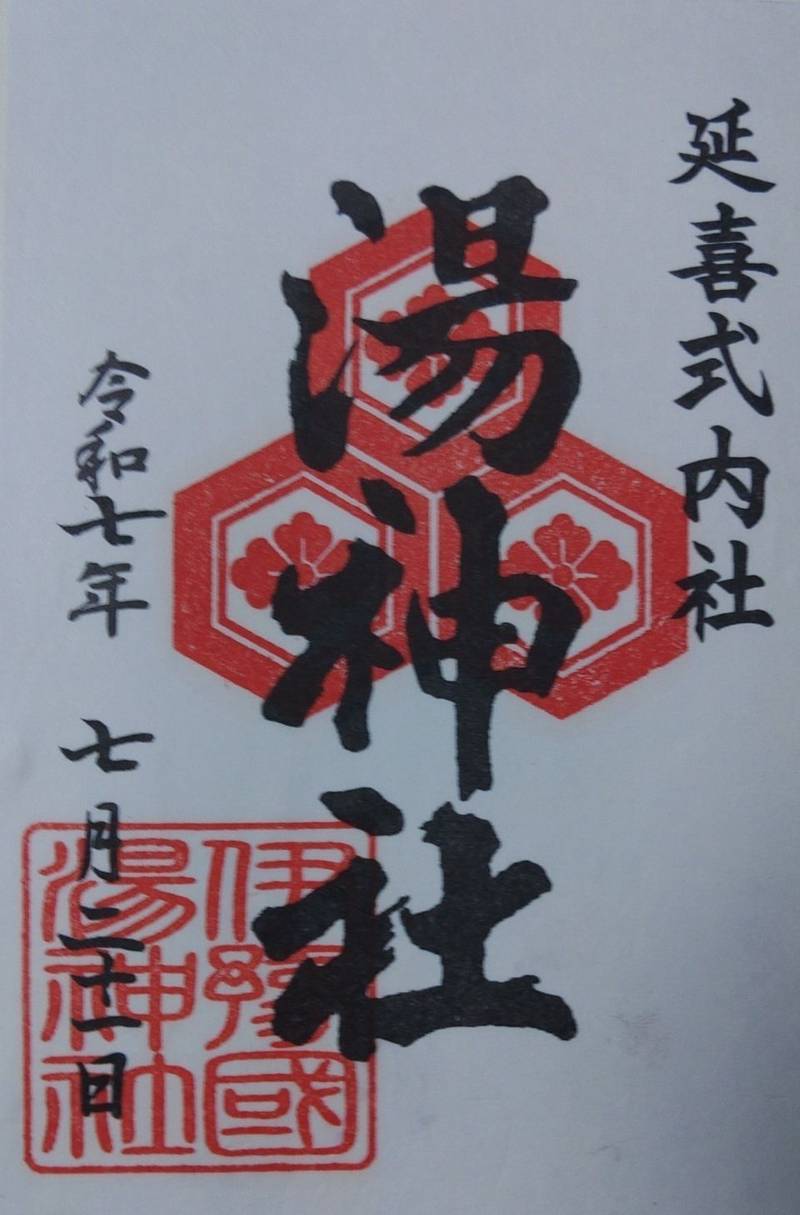 延喜式内社
湯神社
令和七年 七月二十一日
伊豫國
湯神社